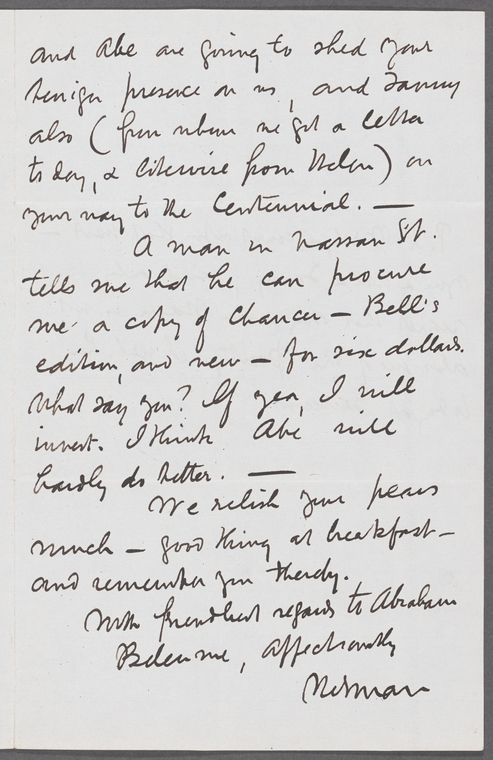 and Abe are going to shed your
benign presence on us, and Fanny
also (from whom we got a letter
to day, & likewise from Helen) on
your way to the Centennial. —
A man in Nassau St.
tells me that he can procure
me a copy of Chaucer — Bell's
edition, and new — for six dollars.
What say you? If yea, I will
invest. I think Abe will
hardly do better. —
We relish your pears
much — good thing at breakfast —
and remember you thereby.
With friendliest regards to Abraham
Believe me, affectionately